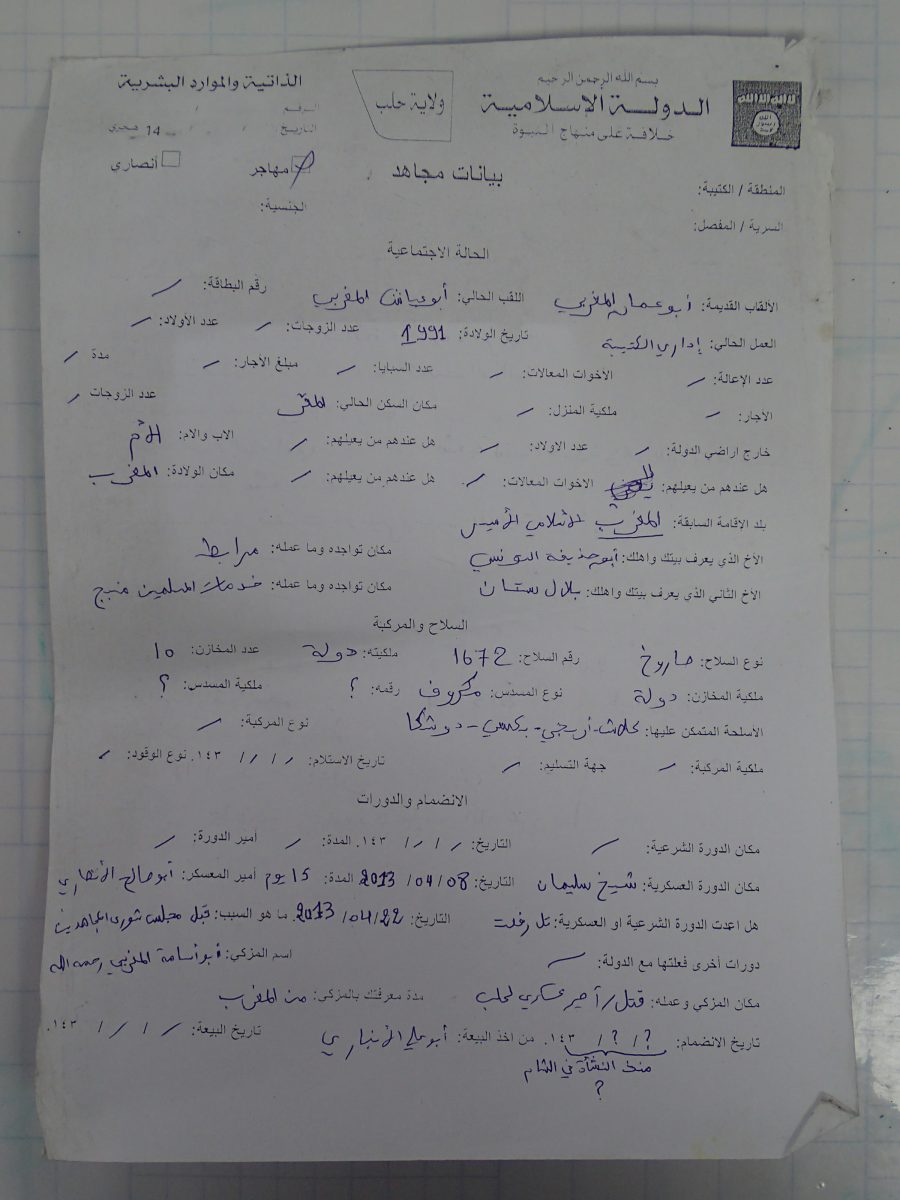 بسم الله الرحمن الرحيم
الدولة الإسلامية
خلافة على منهاج النبوة
ولاية حلب
الذاتية والموارد البشرية
الرقم
التاريخ: / / 14 هجري
بيانات مجاهد
مهاجر أنصاري
المنطقة / الكتيبة:
الجنسية:
السرية / المفصل:
الحالة الاجتماعية
الألقاب القديمة: أبو عمار المغربي اللقب الحالي: أبو عياش المغربي رقم البطاقة: /
العمل الحالي: إداري الكتيبة تاريخ الولادة: 1991 عدد الزوجات: / عدد الأولاد: /
عدد الإعالة: / الاخوات المعالات: / عدد السبايا: / مبلغ الأجار: / مدة /
الأجار: / ملكية المنزل: / مكان السكن الحالي: المقر عدد الزوجات /
خارج اراضي الدولة: / عدد الاولاد: / هل عندهم من يعيلهم: / الاب والام: الأم
هل عندهم من يعيلهم: الاخوات المعالات: / هل عندهم من يعيلهم: / مكان الولادة: المغرب
بلد الاقامة السابقة: المغرب الاسلامي الأسير
الأخ الذي يعرف بيتك واهلك: أبو حذيفة التونسي مكان تواجده وما عمله: مرابط
الاخ الثاني الذي يعرف بيتك واهلك: بلال ستان مكان تواجده وما عمله: خدمات المسلمين منبج
السلاح والمركبة
نوع السلاح: صاروخ رقم السلاح: 1672 ملكيته: دولة عدد المخازن: 10
ملكية المخازن: دولة نوع المسدس: مكروف رقمه: ؟ ملكية المسدس: ؟
الأسلحة المتمكن عليها: كلاش - أربجي - بكسي - دوشكا نوع المركبة: /
ملكية المركبة: / جهة التسليم: / تاريخ الاستلام: / / / ١٤٣. نوع الوقود: /
الانضمام والدورات
مكان الدورة الشرعية: / التاريخ: / / / ١٤٣. المدة: / أمير الدورة: /
مكان الدورة العسكرية: شيخ سليمان التاريخ: 2013/04/08 المدة: 15 يوم أمير المعسكر: أبو صالح الأنصاري
هل اعدت الدورة الشرعية او العسكرية: تل رفعت التاريخ: 2013/04/22. ما هو السبب: قبل مجلس شورى المجاهدين
دورات أخرى فعلتها مع الدولة: / اسم المزكي: أبو أسامة المغربي رحمه الله
مكان المزكي وعمله: قتل/أمير عسكري لحلب مدة معرفتك بالمزكي: من المغرب
تاريخ الانضمام: ؟ / ؟ / ١٤٣. من اخذ البيعة: أبو علي الأنباري تاريخ البيعة: / / / ١٤٣.
منذ النشأة في الشام
؟